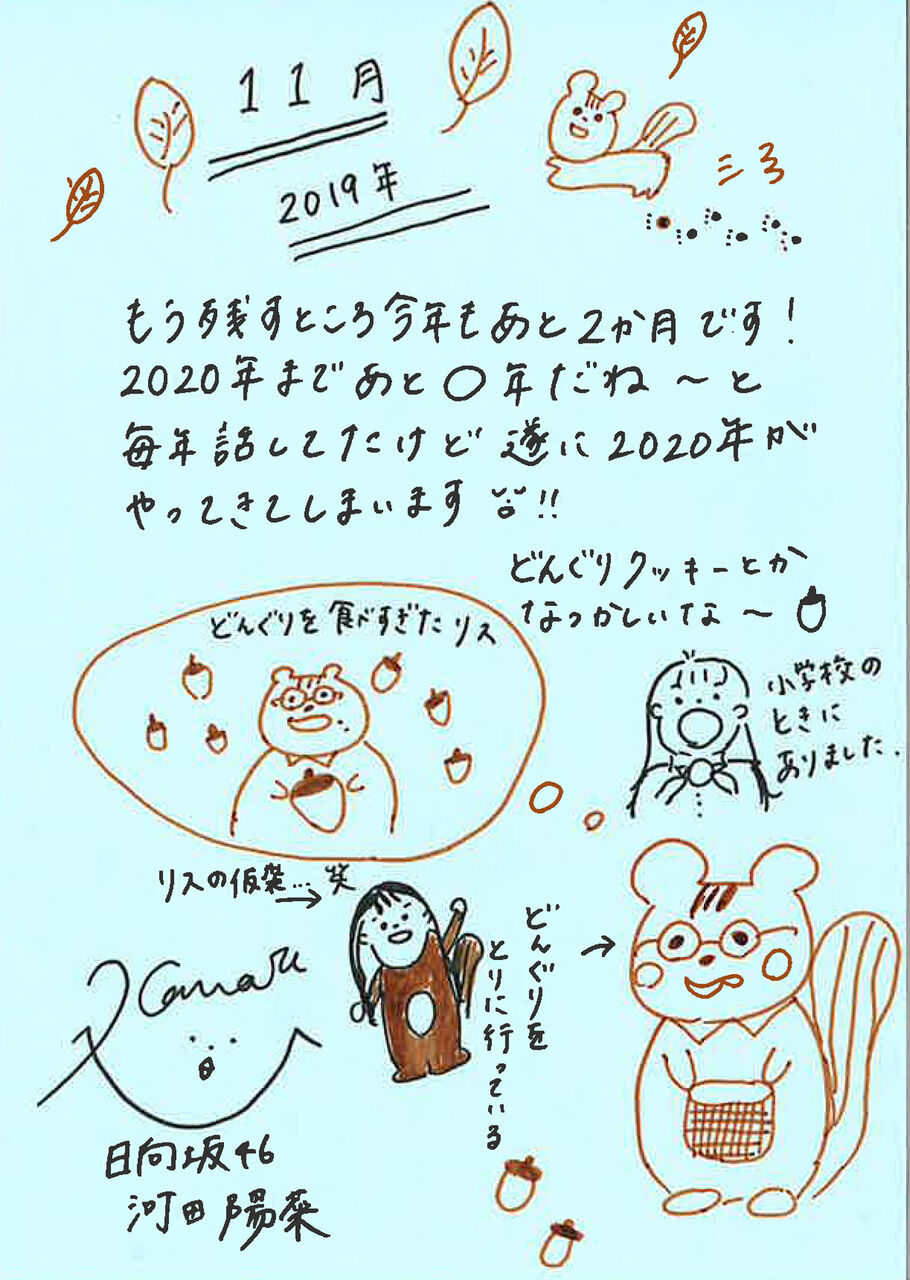 11月
2019年
もう残すところ今年もあと2か月です!
2020年まであと〇年だね〜と
毎年話してたけど遂に2020年が
やってきてしまいます!!
どんぐりクッキーとか
なつかしいな〜
どんぐりを食べすぎたリス
小学校の
ときに
ありました.
リスの仮装…笑
どんぐりを
とりに行っている
日向坂46
河田陽菜